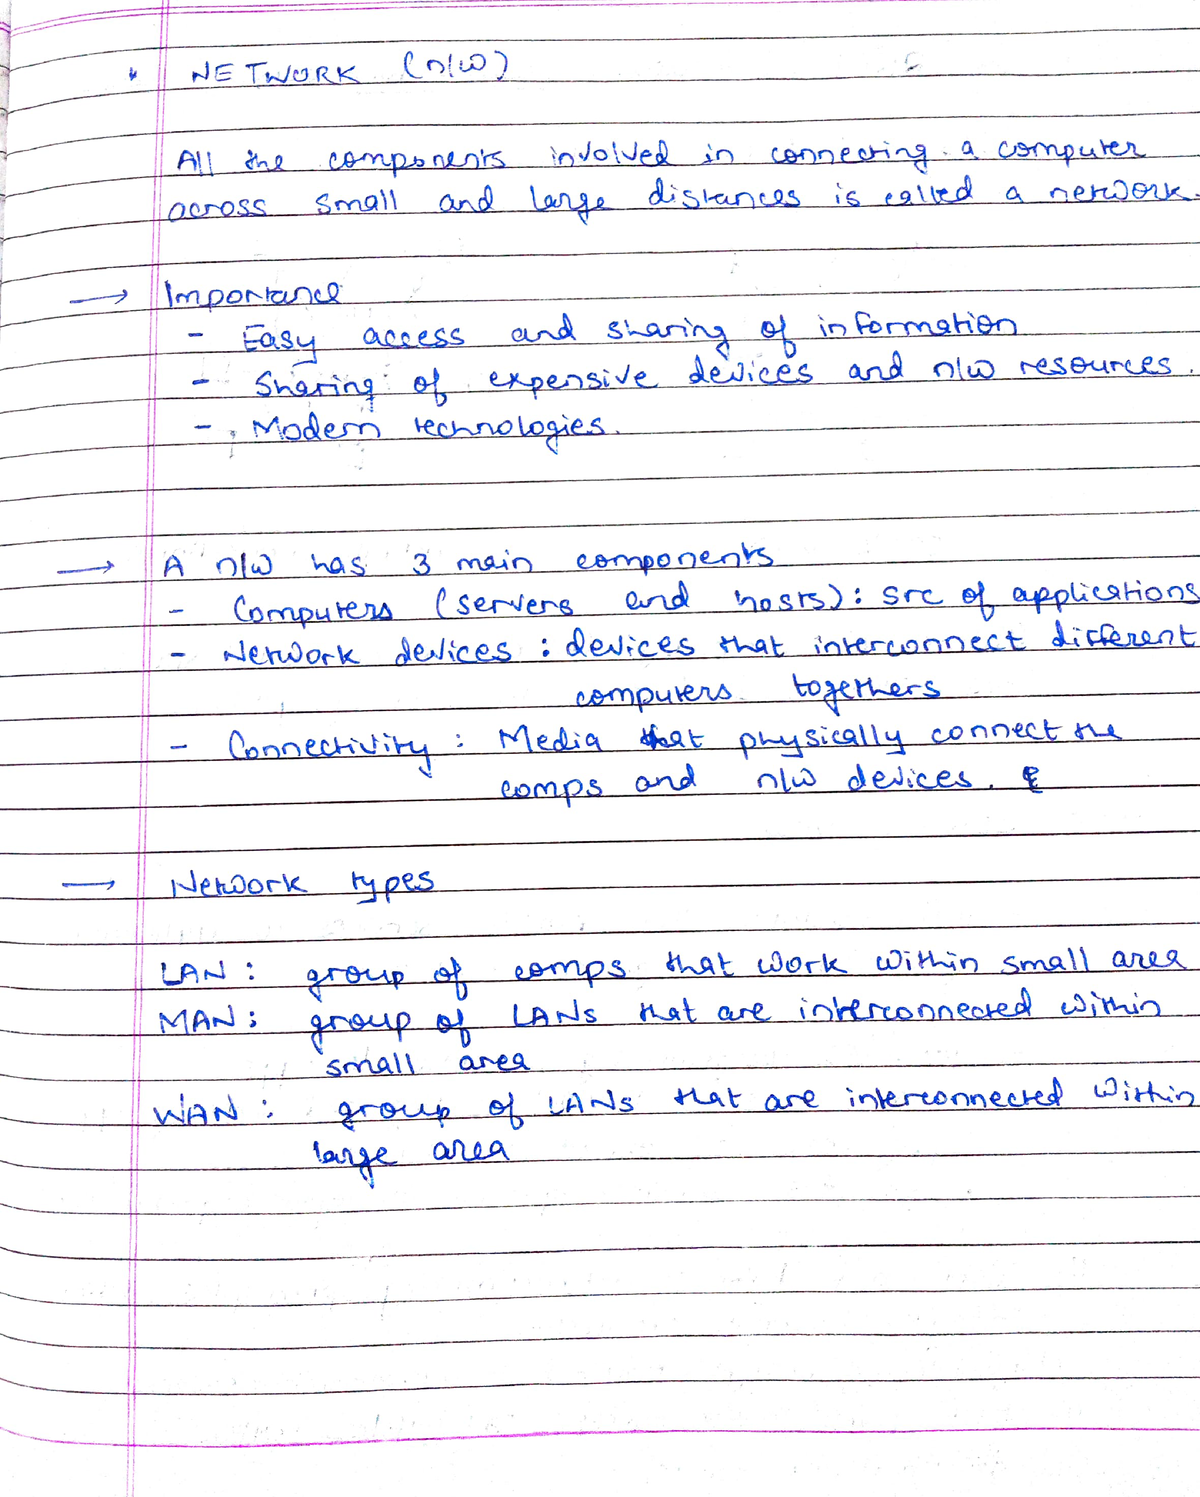 NETWORK (n/w)
All the components involved in connecting a computer
across small and large distances is called a network.
→ Importance
- Easy access and sharing of information
- Sharing of expensive devices and n/w resources.
- Modern technologies.
→ A n/w has 3 main components
- Computers (servers and hosts): src of applications
- Network devices : devices that interconnect different
computers togethers
- Connectivity : Media that physically connect the
comps and n/w devices.
→ Network types
LAN : group of comps that work within small area
MAN : group of LANs that are interconnected within
small area
WAN : group of LANs that are interconnected within
large area